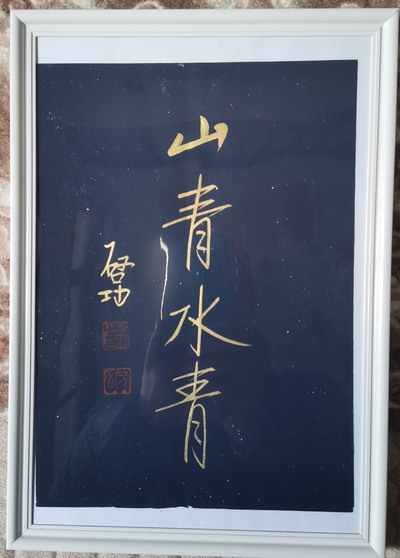 山青水青
启功